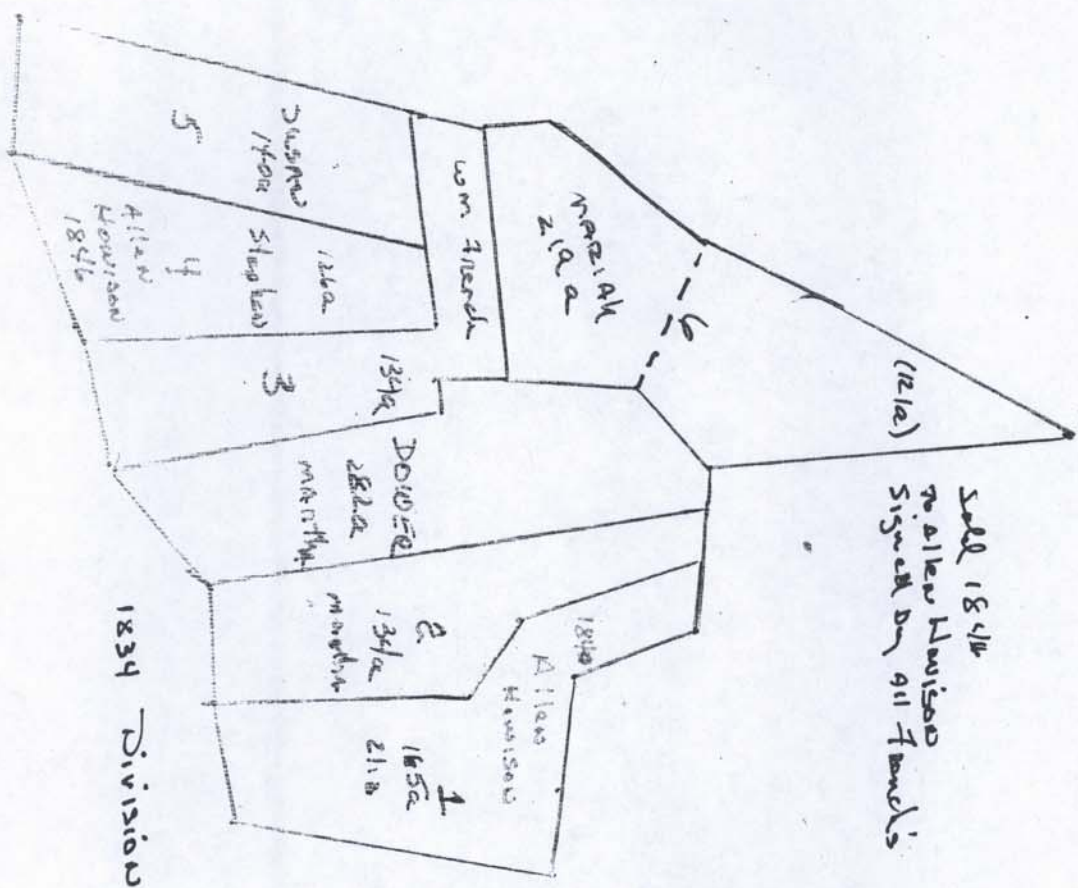 Sold 1846
To Allen Howison
Signed by All French's
(121a)
6
MARIAH
212a
Wm. French
SUSAN
140a
5
126a
Stephen
4
Allen
Howison
1846
134a
3
DOWER
282a
MARTHA
2
134a
Martha
Allen
Howison
1
165a
211a
1834 Division